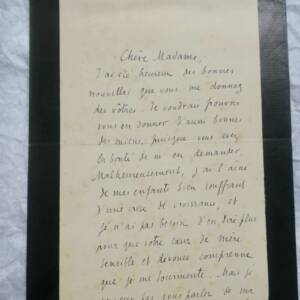 Chère Madame,
J'ai été heureux des bonnes
nouvelles que vous me donnez
des vôtres. Je voudrais pouvoir
vous en donner d'aussi bonnes
des miens, puisque vous avez
la bonté de m'en demander.
Malheureusement, j'ai l'aîné
de mes enfants bien souffrant
d'une crise de croissance, et
je n'ai pas besoin d'en dire plus
pour que votre cœur de mère
sensible et dévouée comprenne
que je me tourmente. Mais je
pas vous parler